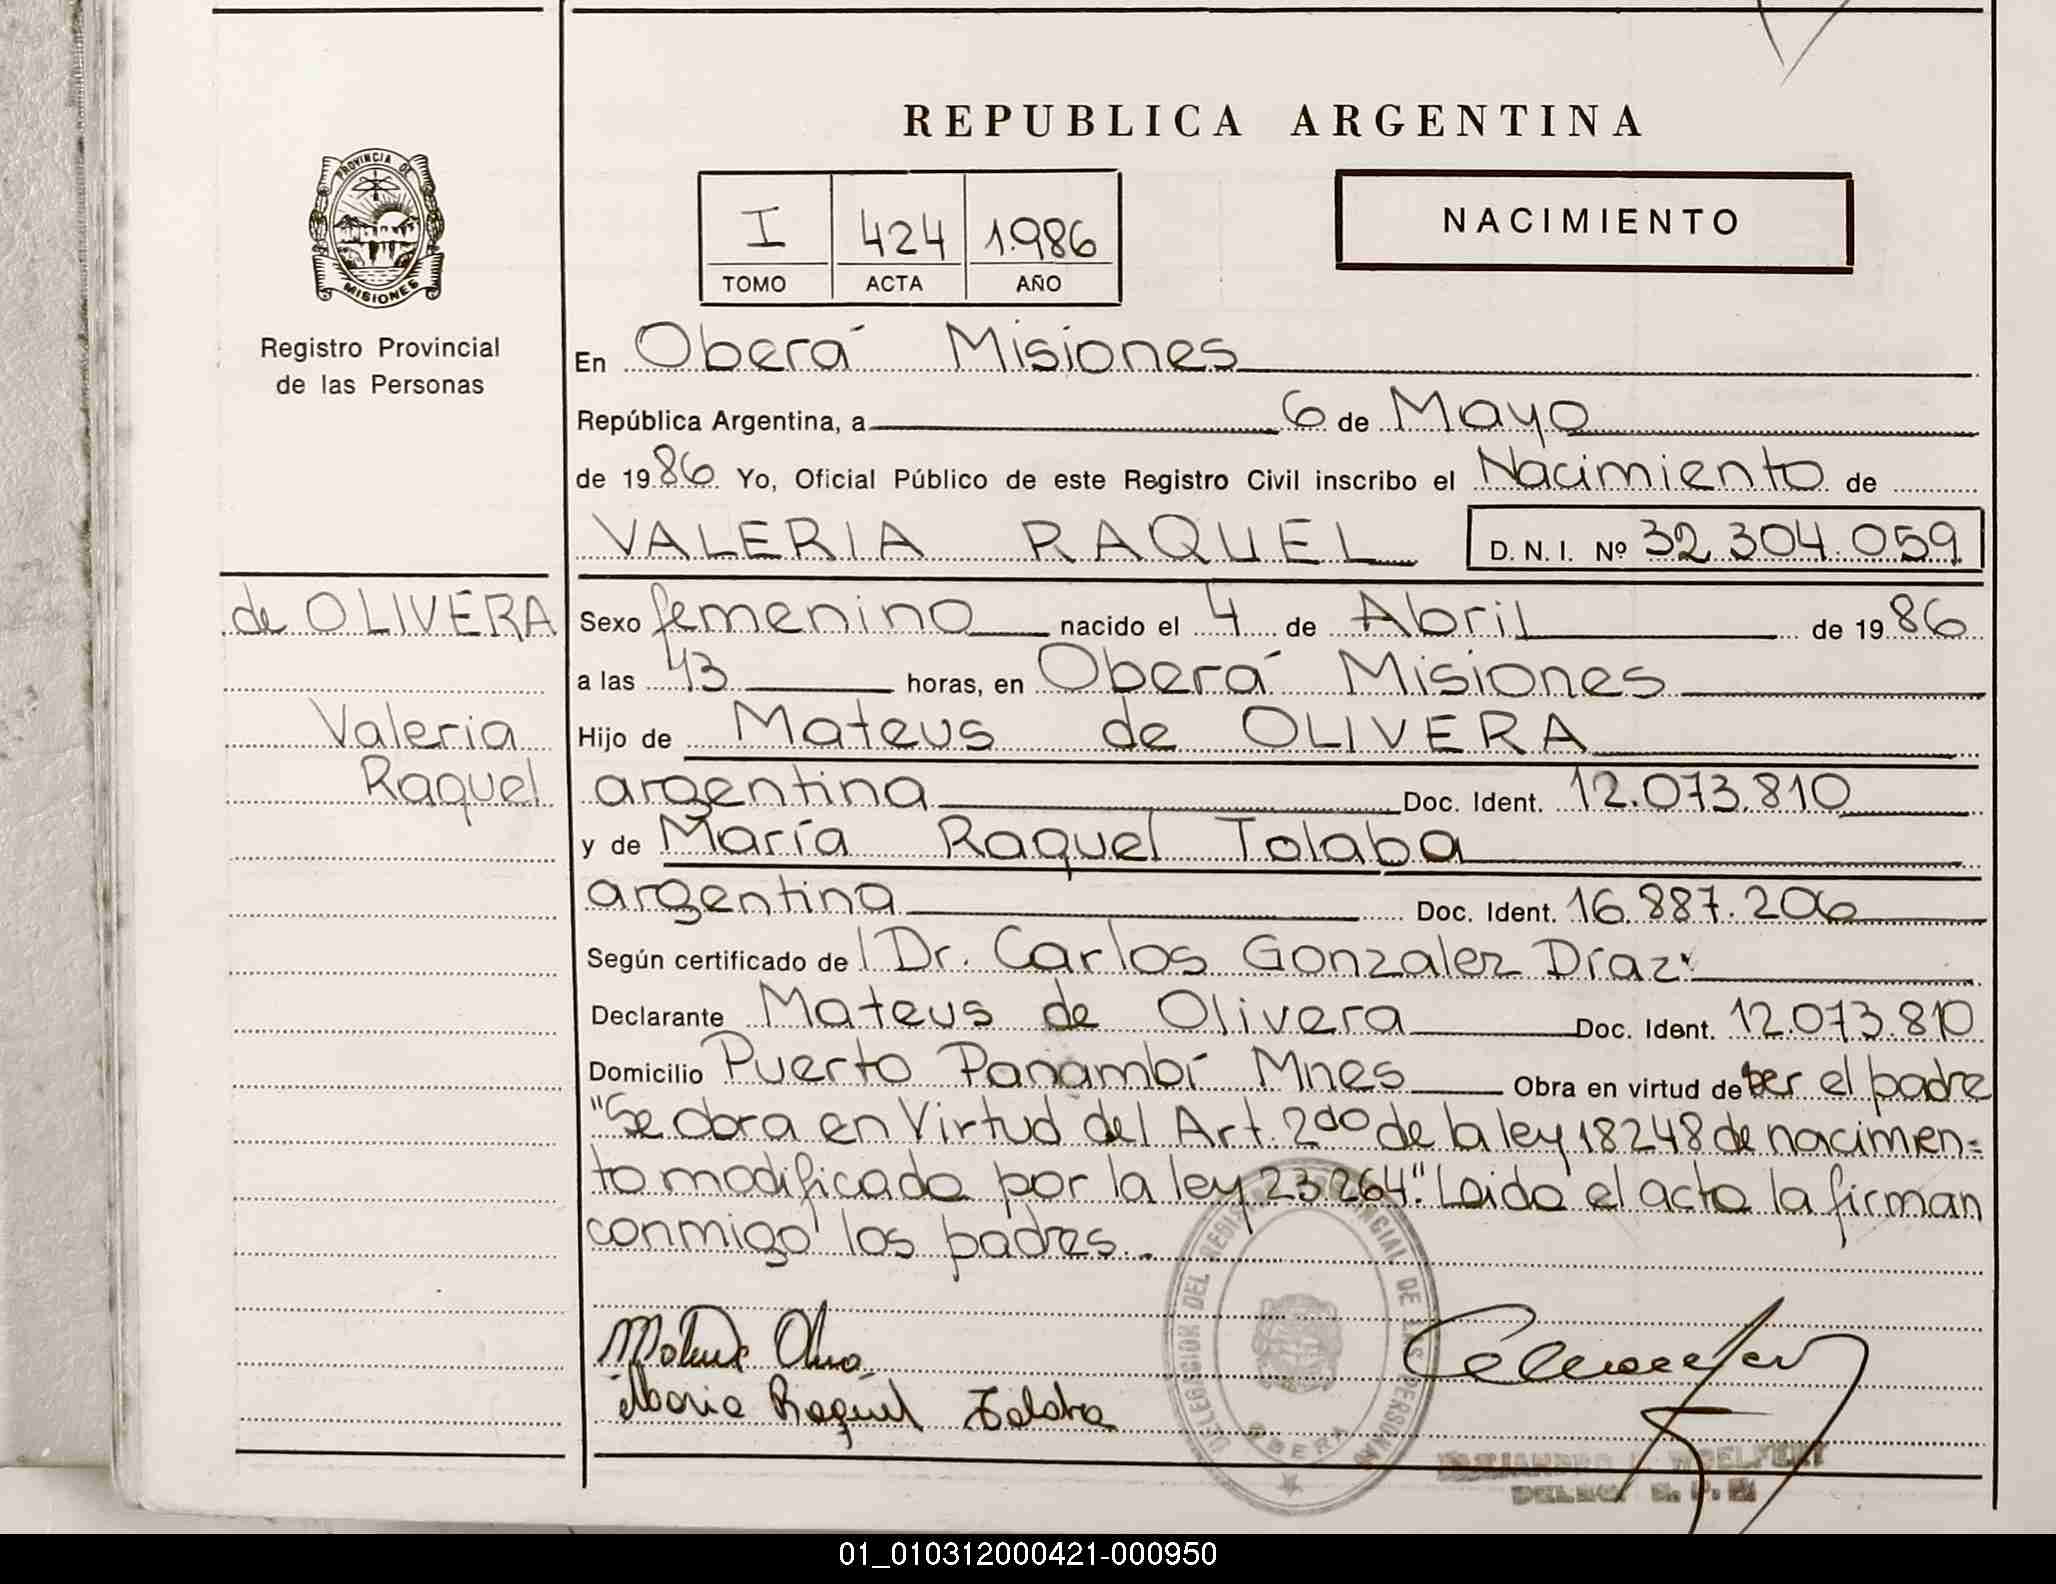 REPUBLICA ARGENTINA
PROVINCIA DE
MISIONES
Registro Provincial
de las Personas
I 424 1.986
TOMO ACTA AÑO
NACIMIENTO
En Oberá Misiones
República Argentina, a 6 de Mayo
de 1986 Yo, Oficial Público de este Registro Civil inscribo el Nacimiento de
VALERIA RAQUEL D. N. I. Nº 32.304.059
de OLIVERA
Valeria
Raquel
Sexo femenino nacido el 4 de Abril de 1986
a las 13 horas, en Oberá Misiones
Hijo de Mateus de OLIVERA
argentina Doc. Ident. 12.073.810
y de María Raquel Tolaba
argentina Doc. Ident. 16.887.206
Según certificado de Dr. Carlos Gonzalez Díaz
Declarante Mateus de Olivera Doc. Ident. 12.073.810
Domicilio Puerto Panambí Mnes Obra en virtud de ser el padre
"Se obra en Virtud del Art. 2do de la ley 18248 de nacimen=
to modificado por la ley 23.264". Leido el acto la firman
conmigo los padres.
Maria Raquel Tolaba
DELEGACION DEL REGISTRO PROVINCIAL DE LAS PERSONAS
OBERA
01_010312000421-000950